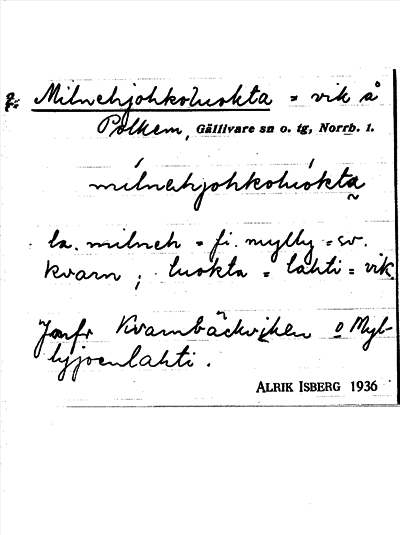 Milnehjohkoluokta = vik å
Polkem, Gällivare sn o. tg, Norrb. l.
milnehjohkoluókta
la. milneh = fi. mylly = sv.
kvarn; luokta = lahti = vik.
Jmfr Kvarnbäckviken o Myl-
lyjoenlahti.
ALRIK ISBERG 1936